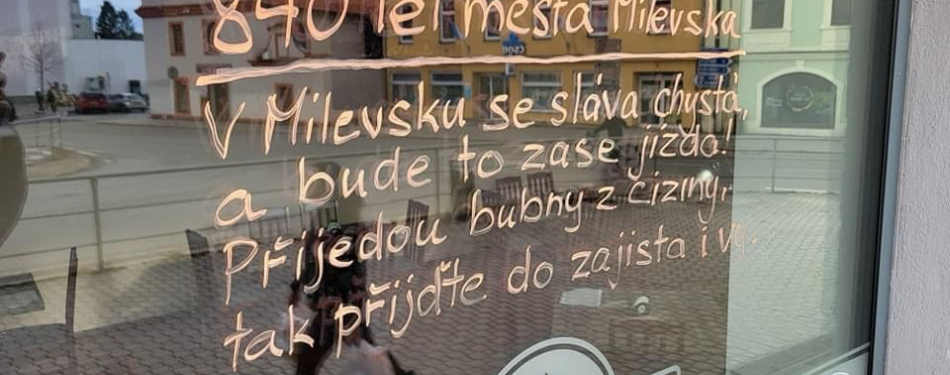 840 let města Milevska
V Milevsku se sláva chystá,
a bude to zase jízda!
Přijedou bubny z ciziny,
tak přijďte do zajista i vy.
ČSOB